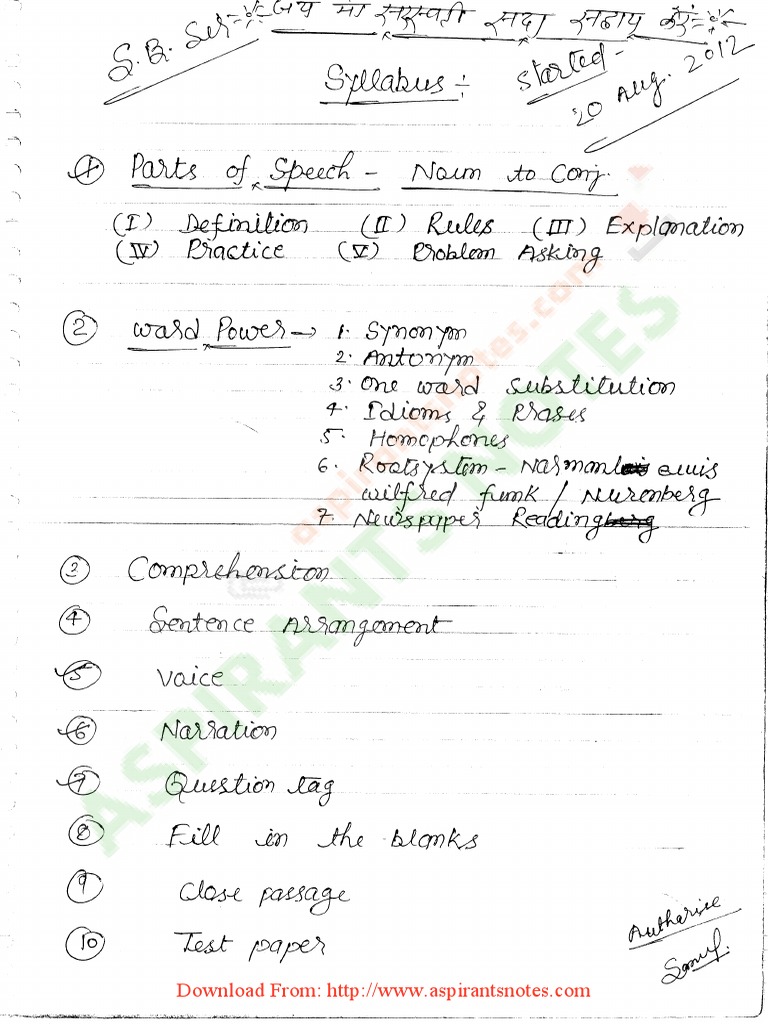 जय मां सरस्वती सदा सहाय करें
S.B. Ser
Syllabus :-
Started -
20 Aug. 2012
1 Parts of Speech - Noun to Conj.
(I) Definition (II) Rules (III) Explanation
(IV) Practice (V) Problem Asking
2 Word Power → 1. Synonym
2. Antonym
3. One word substitution
4. Idioms & Prases
5. Homophones
6. Rootsystem - Norman Lewis
wilfred funk / Nurenberg
7. Newspaper Reading
3 Comprehension
4 Sentence Arrangement
5 Voice
6 Narration
7 Question tag
8 Fill in the blanks
9 Close passage
10 Test paper
Autharise
ASPIRANTS NOTES
aspirantsnotes.com
Download From: http://www.aspirantsnotes.com